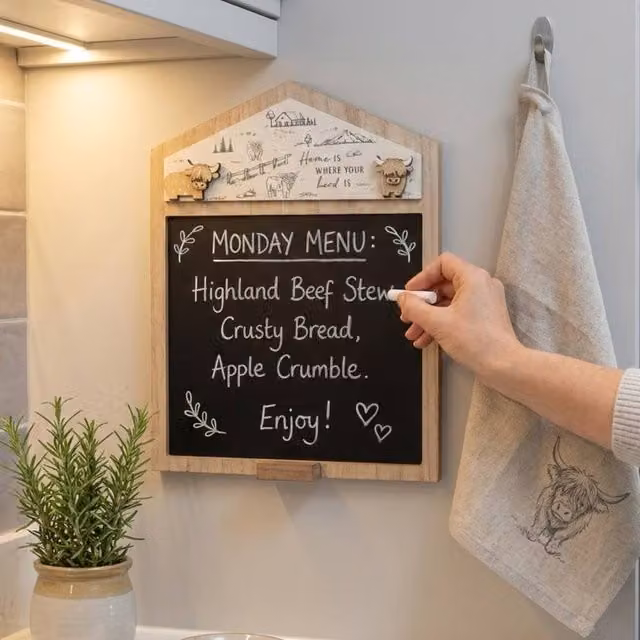 Home is
WHERE YOUR
herd is
MONDAY MENU:
Highland Beef Stew
Crusty Bread,
Apple Crumble.
Enjoy!